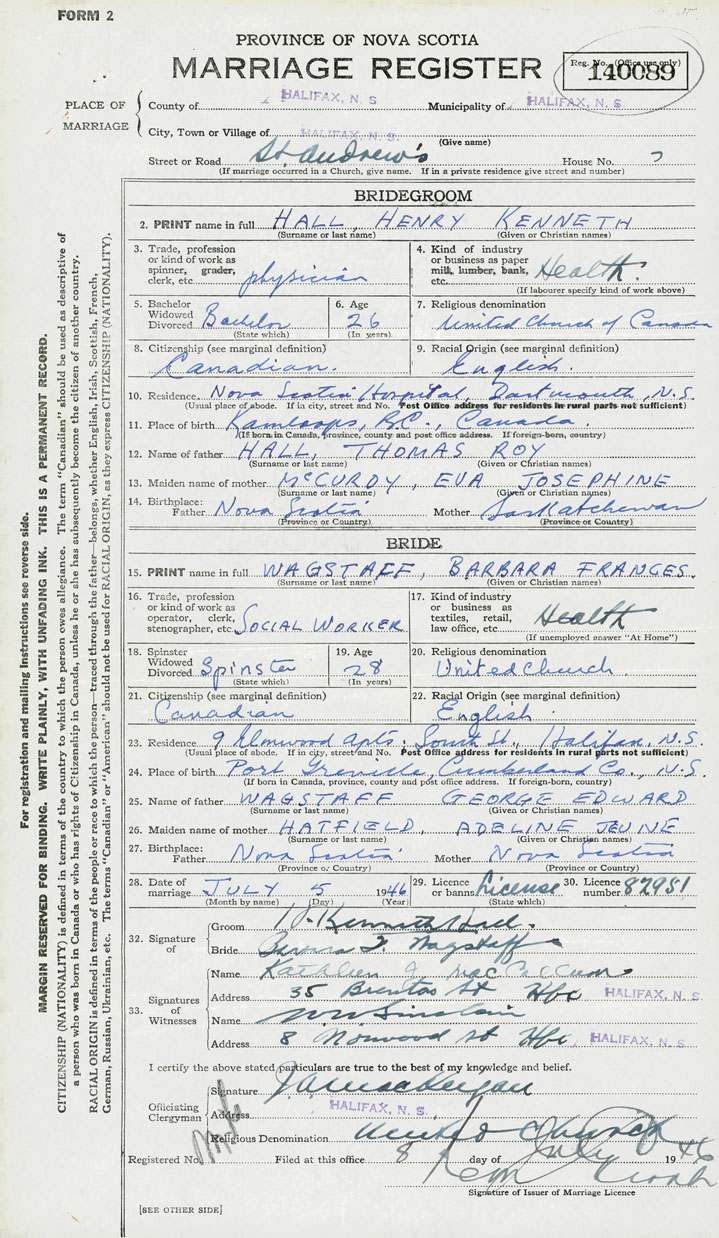 FORM 2
PROVINCE OF NOVA SCOTIA
MARRIAGE REGISTER
Reg. No. (Office use only)
140089
PLACE OF MARRIAGE
County of HALIFAX, N. S. Municipality of HALIFAX, N. S.
City, Town or Village of HALIFAX, N. S.
(Give name)
Street or Road St. Andrew's House No.
(If marriage occurred in a Church, give name. If in a private residence give street and number)
BRIDEGROOM
2. PRINT name in full HALL, HENRY KENNETH
(Surname or last name) (Given or Christian names)
3. Trade, profession or kind of work as spinner, grader, clerk, etc. physician
4. Kind of industry or business as paper mill, lumber, bank, etc. Health.
(If labourer specify kind of work above)
5. Bachelor Widowed Divorced Bachelor (State which)
6. Age 26 (In years)
7. Religious denomination United Church of Canada
8. Citizenship (see marginal definition) Canadian.
9. Racial Origin (see marginal definition) English.
10. Residence Nova Scotia Hospital, Dartmouth, N.S.
(Usual place of abode. If in city, street and No. Post Office address for residents in rural parts not sufficient)
11. Place of birth Kamloops, B.C., Canada.
(If born in Canada, province, county and post office address. If foreign-born, country)
12. Name of father HALL, THOMAS ROY
(Surname or last name) (Given or Christian names)
13. Maiden name of mother McCURDY, EVA JOSEPHINE
(Surname or last name) (Given or Christian names)
14. Birthplace: Father Nova Scotia Mother Saskatchewan
(Province or Country) (Province or Country)
BRIDE
15. PRINT name in full WAGSTAFF, BARBARA FRANCES.
(Surname or last name) (Given or Christian names)
16. Trade, profession or kind of work as operator, clerk, stenographer, etc. SOCIAL WORKER
17. Kind of industry or business as textiles, retail, law office, etc. Health
(If unemployed answer "At Home")
18. Spinster Widowed Divorced Spinster (State which)
19. Age 28 (In years)
20. Religious denomination United Church.
21. Citizenship (see marginal definition) Canadian
22. Racial Origin (see marginal definition) English.
23. Residence 9 Elmwood Apts. South St., Halifax, N.S.
(Usual place of abode. If in city, street and No. Post Office address for residents in rural parts not sufficient)
24. Place of birth Port Greville, Cumberland Co., N.S.
(If born in Canada, province, county and post office address. If foreign-born, country)
25. Name of father WAGSTAFF GEORGE EDWARD
(Surname or last name) (Given or Christian names)
26. Maiden name of mother HATFIELD, ADELINE JEUNE
(Surname or last name) (Given or Christian names)
27. Birthplace: Father Nova Scotia Mother Nova Scotia
(Province or Country) (Province or Country)
28. Date of marriage JULY 5 1946
(Month by name) (Day) (Year)
29. Licence or banns License (State which)
30. Licence number 87951
32. Signature of
Groom H. Kenneth Hall.
Bride Barbara F. Wagstaff
33. Signatures of Witnesses
Name Kathleen J. MacCallum
Address 35 Brenton St Hfx HALIFAX, N. S.
Name Sinclair
Address 8 Norwood St Hfx, HALIFAX, N. S.
I certify the above stated particulars are true to the best of my knowledge and belief.
Officiating Clergyman
Signature
Address HALIFAX, N. S.
Religious Denomination United Church
Registered No. Filed at this office 8 day of July 1946
Signature of Issuer of Marriage Licence
[SEE OTHER SIDE]
For registration and mailing instructions see reverse side.
MARGIN RESERVED FOR BINDING. WRITE PLAINLY, WITH UNFADING INK. THIS IS A PERMANENT RECORD.
CITIZENSHIP (NATIONALITY) is defined in terms of the country to which the person owes allegiance. The term "Canadian" should be used as descriptive of
a person who was born in Canada or who has rights of Citizenship in Canada, unless he or she has subsequently become the citizen of another country.
RACIAL ORIGIN is defined in terms of the people or race to which the person—traced through the father—belongs, whether English, Irish, Scottish, French,
German, Russian, Ukrainian, etc. The terms "Canadian" or "American" should not be used for RACIAL ORIGIN, as they express CITIZENSHIP (NATIONALITY).